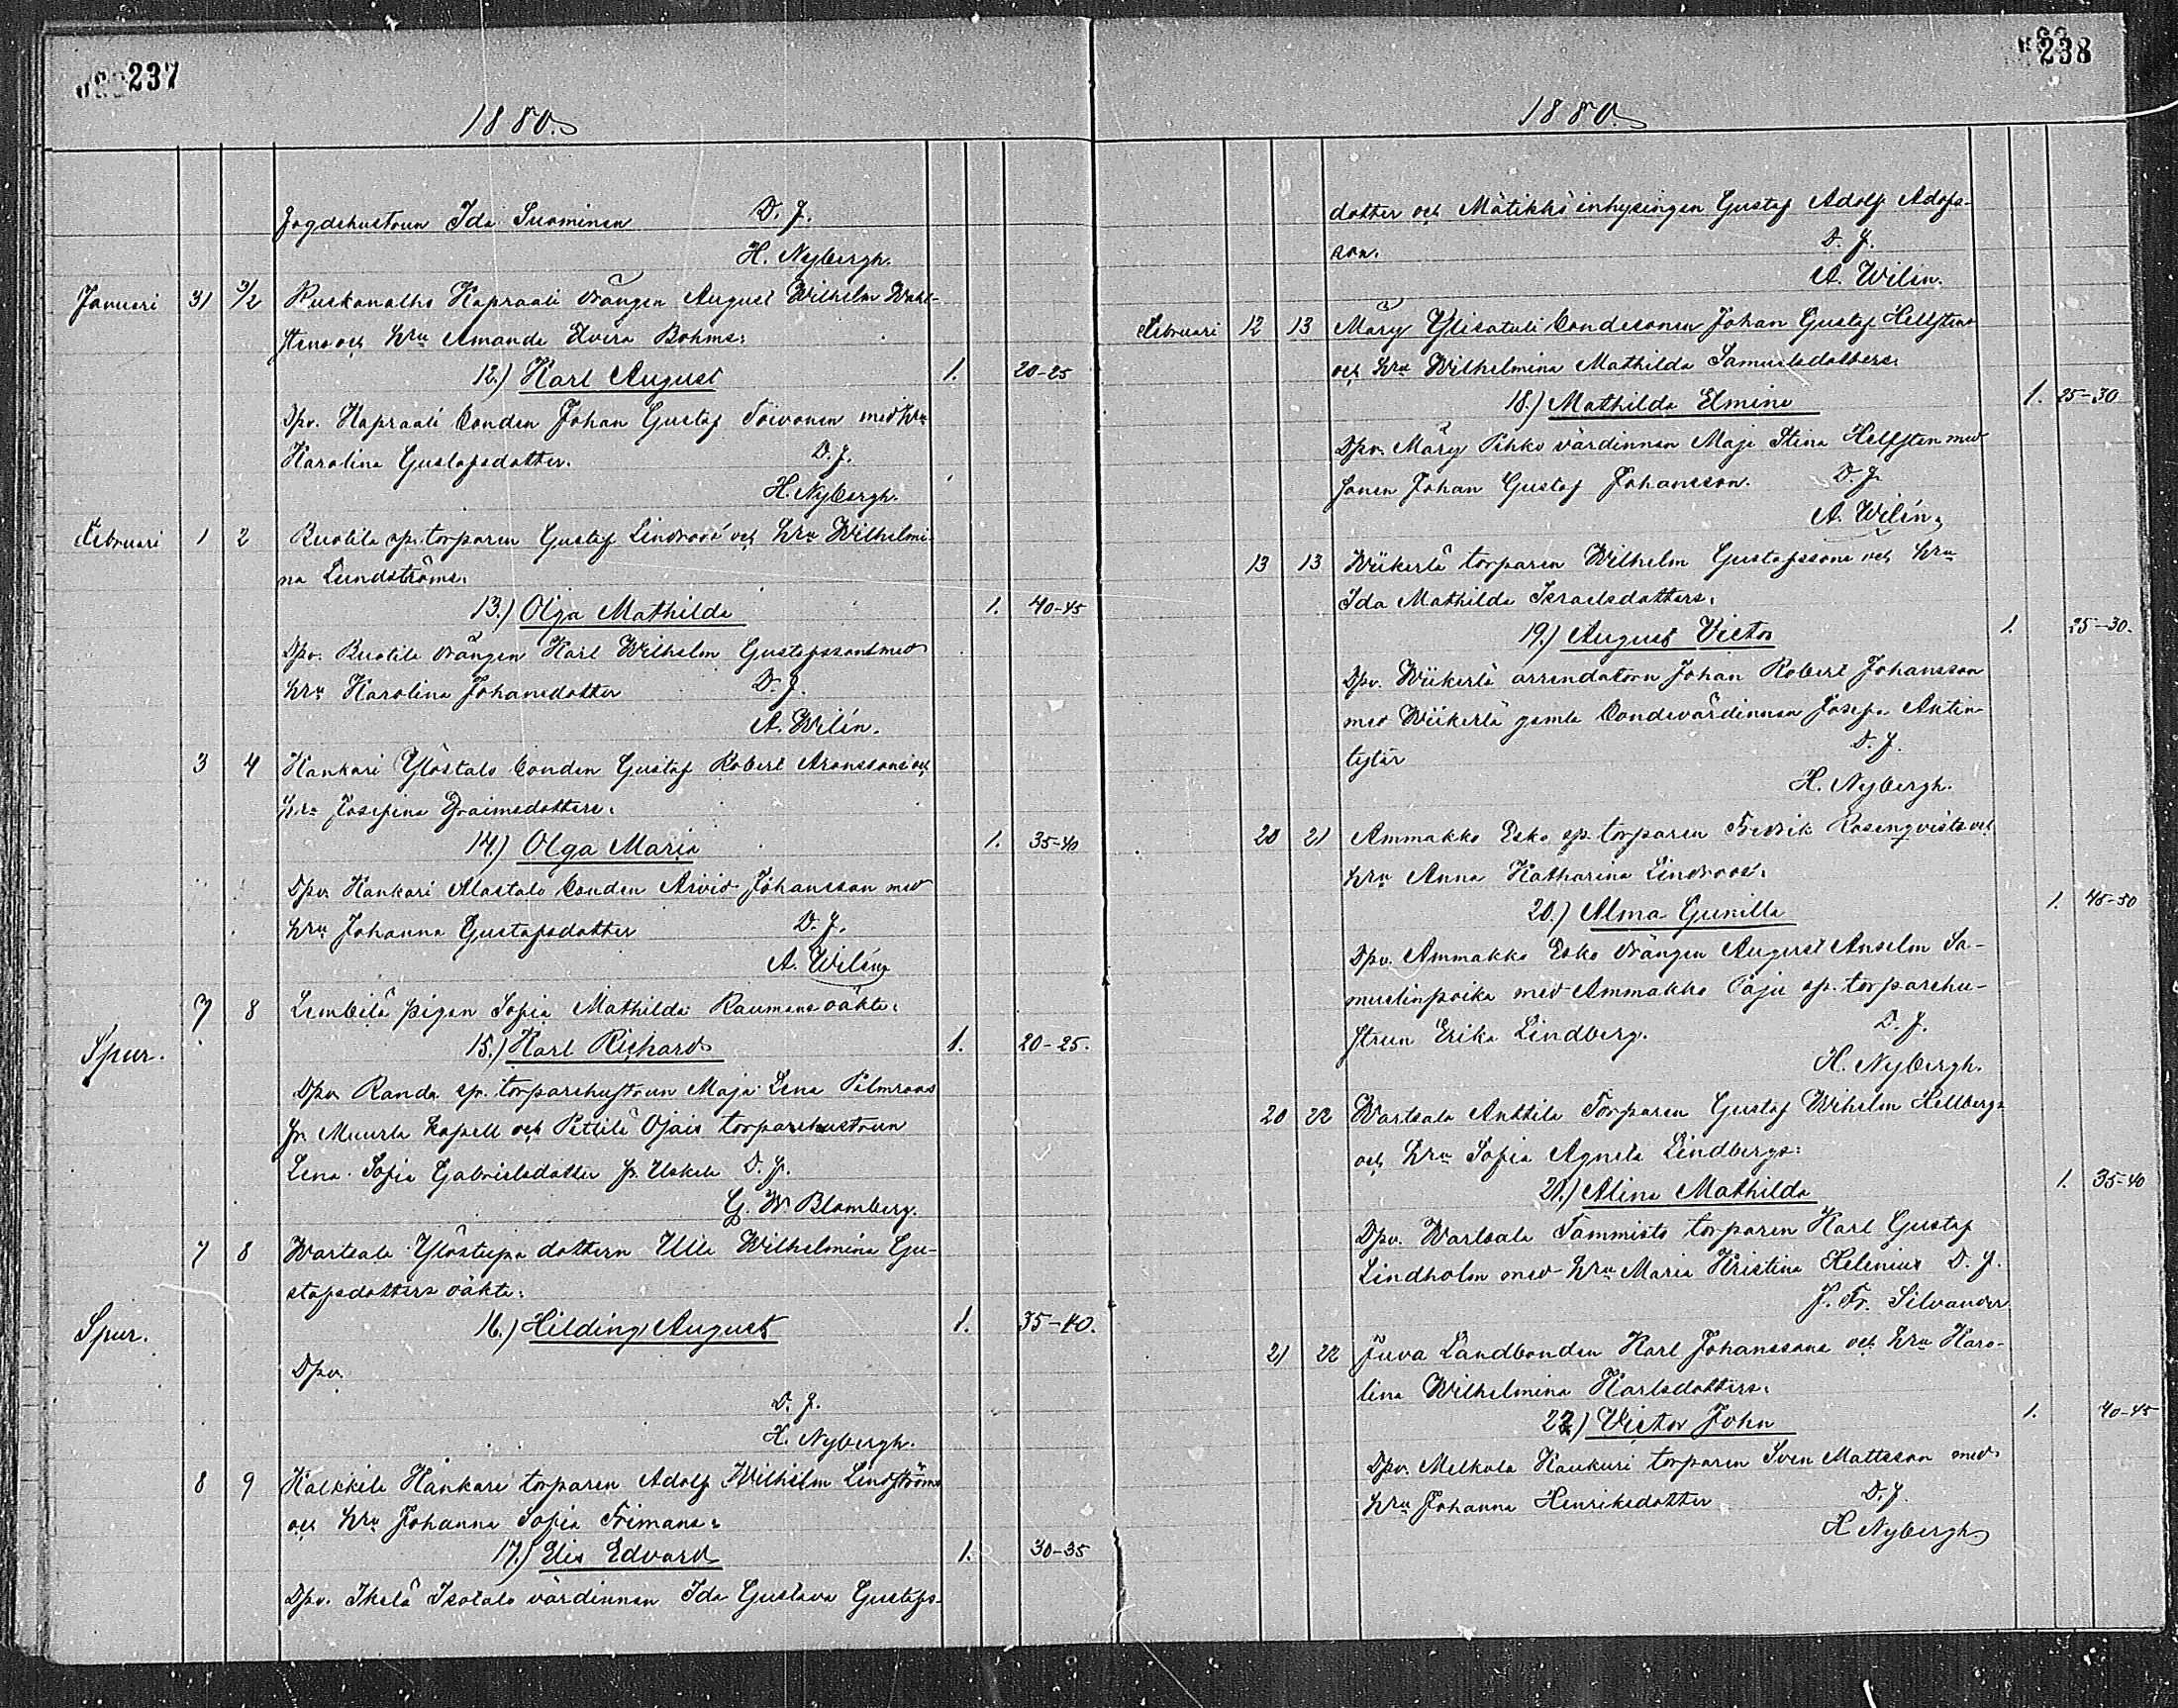 237
1880.
Jagdehustrun Ida Suominen D. J.
H. Nybergh.
Januari 31 3/2 Ruskanalho Kapraali drängen August Wilhelm Wahl-
stens och hru Amanda Elvira Bohms:
12.) Karl August 1. 20-25
Dpv. Kapraali bonden Johan Gustaf Toivonen med hru
Karolina Gustafsdotter. D. J.
H. Nybergh.
Februari 1 2 Ruotila sp. torparen Gustaf Lindroos' och hru Wilhelmi-
na Lundströms:
13.) Olga Mathilda 1. 40-45
Dpv. Ruotila drängen Karl Wilhelm Gustafsson med
hru Karolina Johansdotter D. J.
A. Wilén.
3 4 Hankari Ylöstalo bonden Gustaf Robert Aronssons och
hru Josefina Efraimsdotters:
14.) Olga Maria 1. 35-40
Dpv. Hankari Alastalo bonden Arvid Johansson med
hru Johanna Gustafsdotter D. J.
A. Wilén
7 8 Lembilä pigan Sofia Mathilda Raumans oäkta:
Spur. 15.) Karl Richard 1. 20-25.
Dpv. Randa sp. torparehustrun Maja Lena Palmroos
fr. Muurla kapell och Pettilä Ojais torparehustrun
Lena Sofia Gabrielsdotter fr. Uskela D. J.
G. W. Blomberg.
7 8 Wartsala Ylöstupa dottern Ulla Wilhelmina Gu-
stafsdotters oäkta:
Spur. 16.) Hilding August 1. 35-40.
Dpv.
D. J.
H. Nybergh.
8 9 Kalkkila Hankari torparen Adolf Wilhelm Lindströms
och hru Johanna Sofia Frimans:
17.) Elis Edvard 1. 30-35
Dpv. Ikelä Isotalo värdinnan Ida Gustava Gustafs-
238
1880.
dotter och Mätikkö inhysingen Gustaf Adolf Adofs-
son. D. J.
A. Wilén.
Februari 12 13 Märy Ylisatuli bondesonen Johan Gustaf Hellstens
och hru Wilhelmina Mathilda Samuelsdotters:
18.) Mathilda Elmina 1. 25-30
Dpv. Märy Pehko värdinnan Maja Stina Hellsten med
sonen Johan Gustaf Johansson. D. J.
A. Wilén.
13 13 Wiikerlä torparen Wilhelm Gustafssons och hru
Ida Mathilda Israelsdotters:
19.) August Victor 1. 25-30.
Dpv. Wiikerlä arrendatorn Johan Robert Johansson
med Wiikerlä gamla bondevärdinnan Josefa Antin
tytär D. J.
H. Nybergh.
20 21 Ammakko Esko sp. torparen Fredrik Rosenqvists och
hru Anna Katharina Lindroos':
20.) Alma Gunilla 1. 45-50
Dpv. Ammakko Esko drängen August Anselm Sa-
muelinpoika med Ammakko Paju sp. torparehu-
strun Erika Lindberg. D. J.
H. Nybergh.
20 22 Wartsala Anttila Torparen Gustaf Wihelm Hellbergs
och hru Sofia Agneta Lindbergs:
21.) Alina Mathilda 1. 35-40
Dpv. Wartsala Tammisto torparen Karl Gustaf
Lindholm med hru Maria Kristina Helenius D. J.
J. Fr. Silvander
21 22 Juva Landbonden Karl Johanssons och hru Karo-
lina Wilhelmina Karlsdotters:
22.) Victor John 1. 40-45
Dpv. Melkola Haukuri torparen Sven Mattsson med
hru Johanna Henriksdotter D. J.
H Nybergh